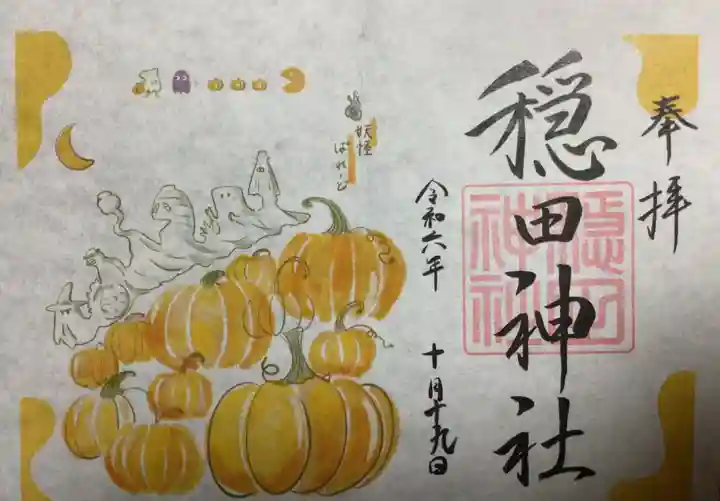 奉拝
穏田神社
穏田神社
令和六年
十月十九日
妖怪
ぱれーど